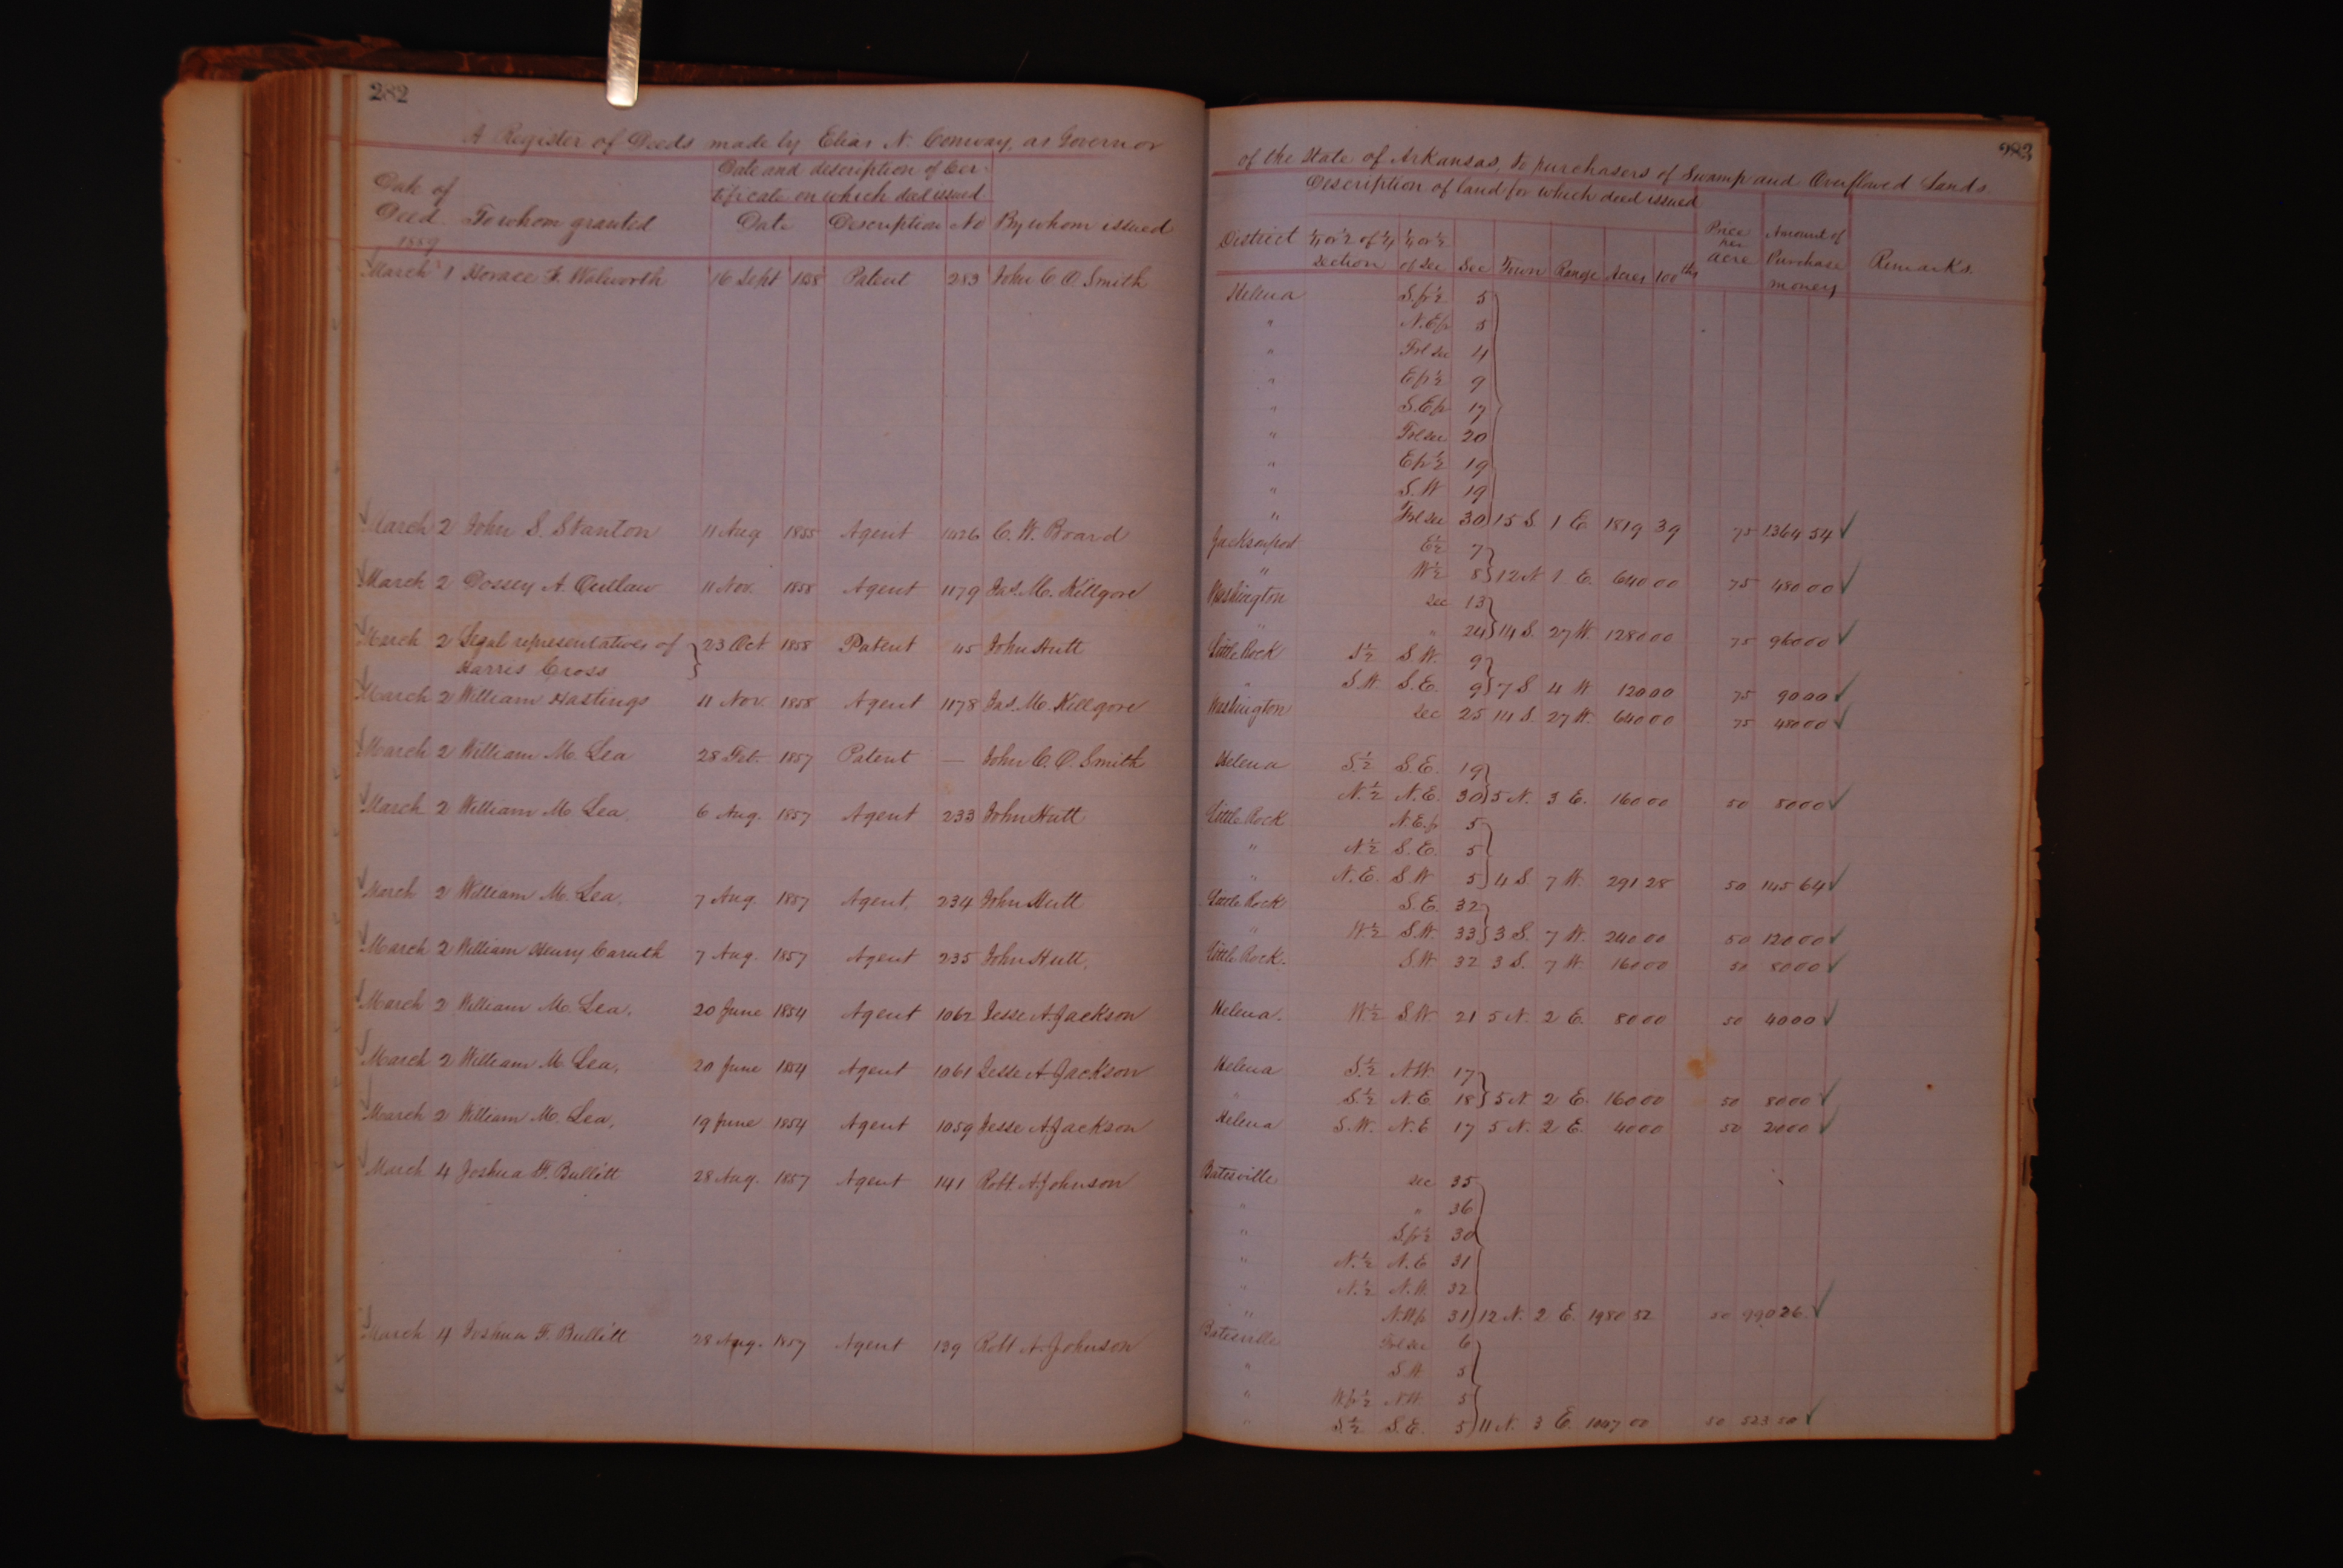 282
A Register of Deeds made by Elias N. Conway, as Governor
Date of Deed To whom granted Date and description of Cer-
tificate on which deed issued
Date Description No By whom issued
1859
March 1 Horace F. Walworth 16 Sept 1858 Patent 283 John C. O. Smith
March 2 John S. Stanton 11 Aug 1855 Agent 1426 C. W. Board
March 2 Dossey A. Outlaw 11 Nov. 1858 Agent 1179 Jas. M. Killgore
March 2 Legal representatives of 23 Oct. 1858 Patent 45 John Hutt
Harris Cross
March 2 William Hastings 11 Nov. 1858 Agent 1178 Jas. M. Killgore
March 2 William M. Lea 28 Feb. 1857 Patent — John C. O. Smith
March 2 William M. Lea 6 Aug. 1857 Agent 233 John Hutt
March 2 William M. Lea, 7 Aug. 1857 Agent, 234 John Hutt
March 2 William Henry Caruth 7 Aug. 1857 Agent 235 John Hutt,
March 2 William M. Lea, 20 June 1854 Agent 1062 Jesse A. Jackson
March 2 William M. Lea, 20 June 1854 Agent 1061 Jesse A. Jackson
March 2 William M. Lea, 19 June 1854 Agent 1059 Jesse A. Jackson
March 4 Joshua F. Bullitt 28 Aug. 1857 Agent 141 Robt. A. Johnson
March 4 Joshua F. Bullitt 28 Aug. 1857 Agent 139 Robt A. Johnson
283
of the State of Arkansas, to purchasers of Swamp and Overflowed Lands
Description of land for which deed issued
District ¼ or ½ of ¼ section ¼ or ½ of Sec Sec Town Range Acres 100ths Price per acre Amount of Purchase money Remarks.
Helena S.fr½ 5
" N.Efr 5
" Frl sec 4
" Efr½ 9
" S.Efr 17
" Frl sec 20
" Efr½ 19
" S.W 19
" Frl sec 30 15 S. 1 E. 1819 39 75 1364 54
Jacksonport E½ 7
" W½ 8 12 N 1 E. 640 00 75 480 00
Washington Sec 13
" " 24 14 S. 27 W. 1280 00 75 960 00
Little Rock S½ S.W. 9
" S.W. S.E. 9 7 S 4 W 120 00 75 90 00
Washington Sec 25 14 S. 27 W. 640 00 75 480 00
Helena S.½ S.E. 19
N.½ N.E. 30 5 N. 3 E. 160 00 50 80 00
Little Rock N.E.fr 5
" N.½ S.E. 5
" N.E. S.W 5 4 S 7 W. 291 28 50 145 64
Little Rock S.E. 32
" W.½ S.W. 33 3 S. 7 W. 240 00 50 120 00
Little Rock. S.W 32 3 S. 7 W 160 00 50 80 00
Helena. W.½ S.W 21 5 N. 2 E. 80 00 50 40 00
Helena S.½ N.W. 17
" S.½ N.E 18 5 N. 2 E. 160 00 50 80 00
Helena S.W. N.E 17 5 N. 2 E. 40 00 50 20 00
Batesville sec 35
" " 36
" S.fr½ 30
" N.½ N.E 31
" N.½ N.W. 32
" N.Wfr 31 12 N. 2 E. 1980 52 50 990 26
Batesville Frl sec 6
" S.W 5
" W.fr½ N.W. 5
" S.½ S.E. 5 11 N. 3 E. 1047 00 50 523 50